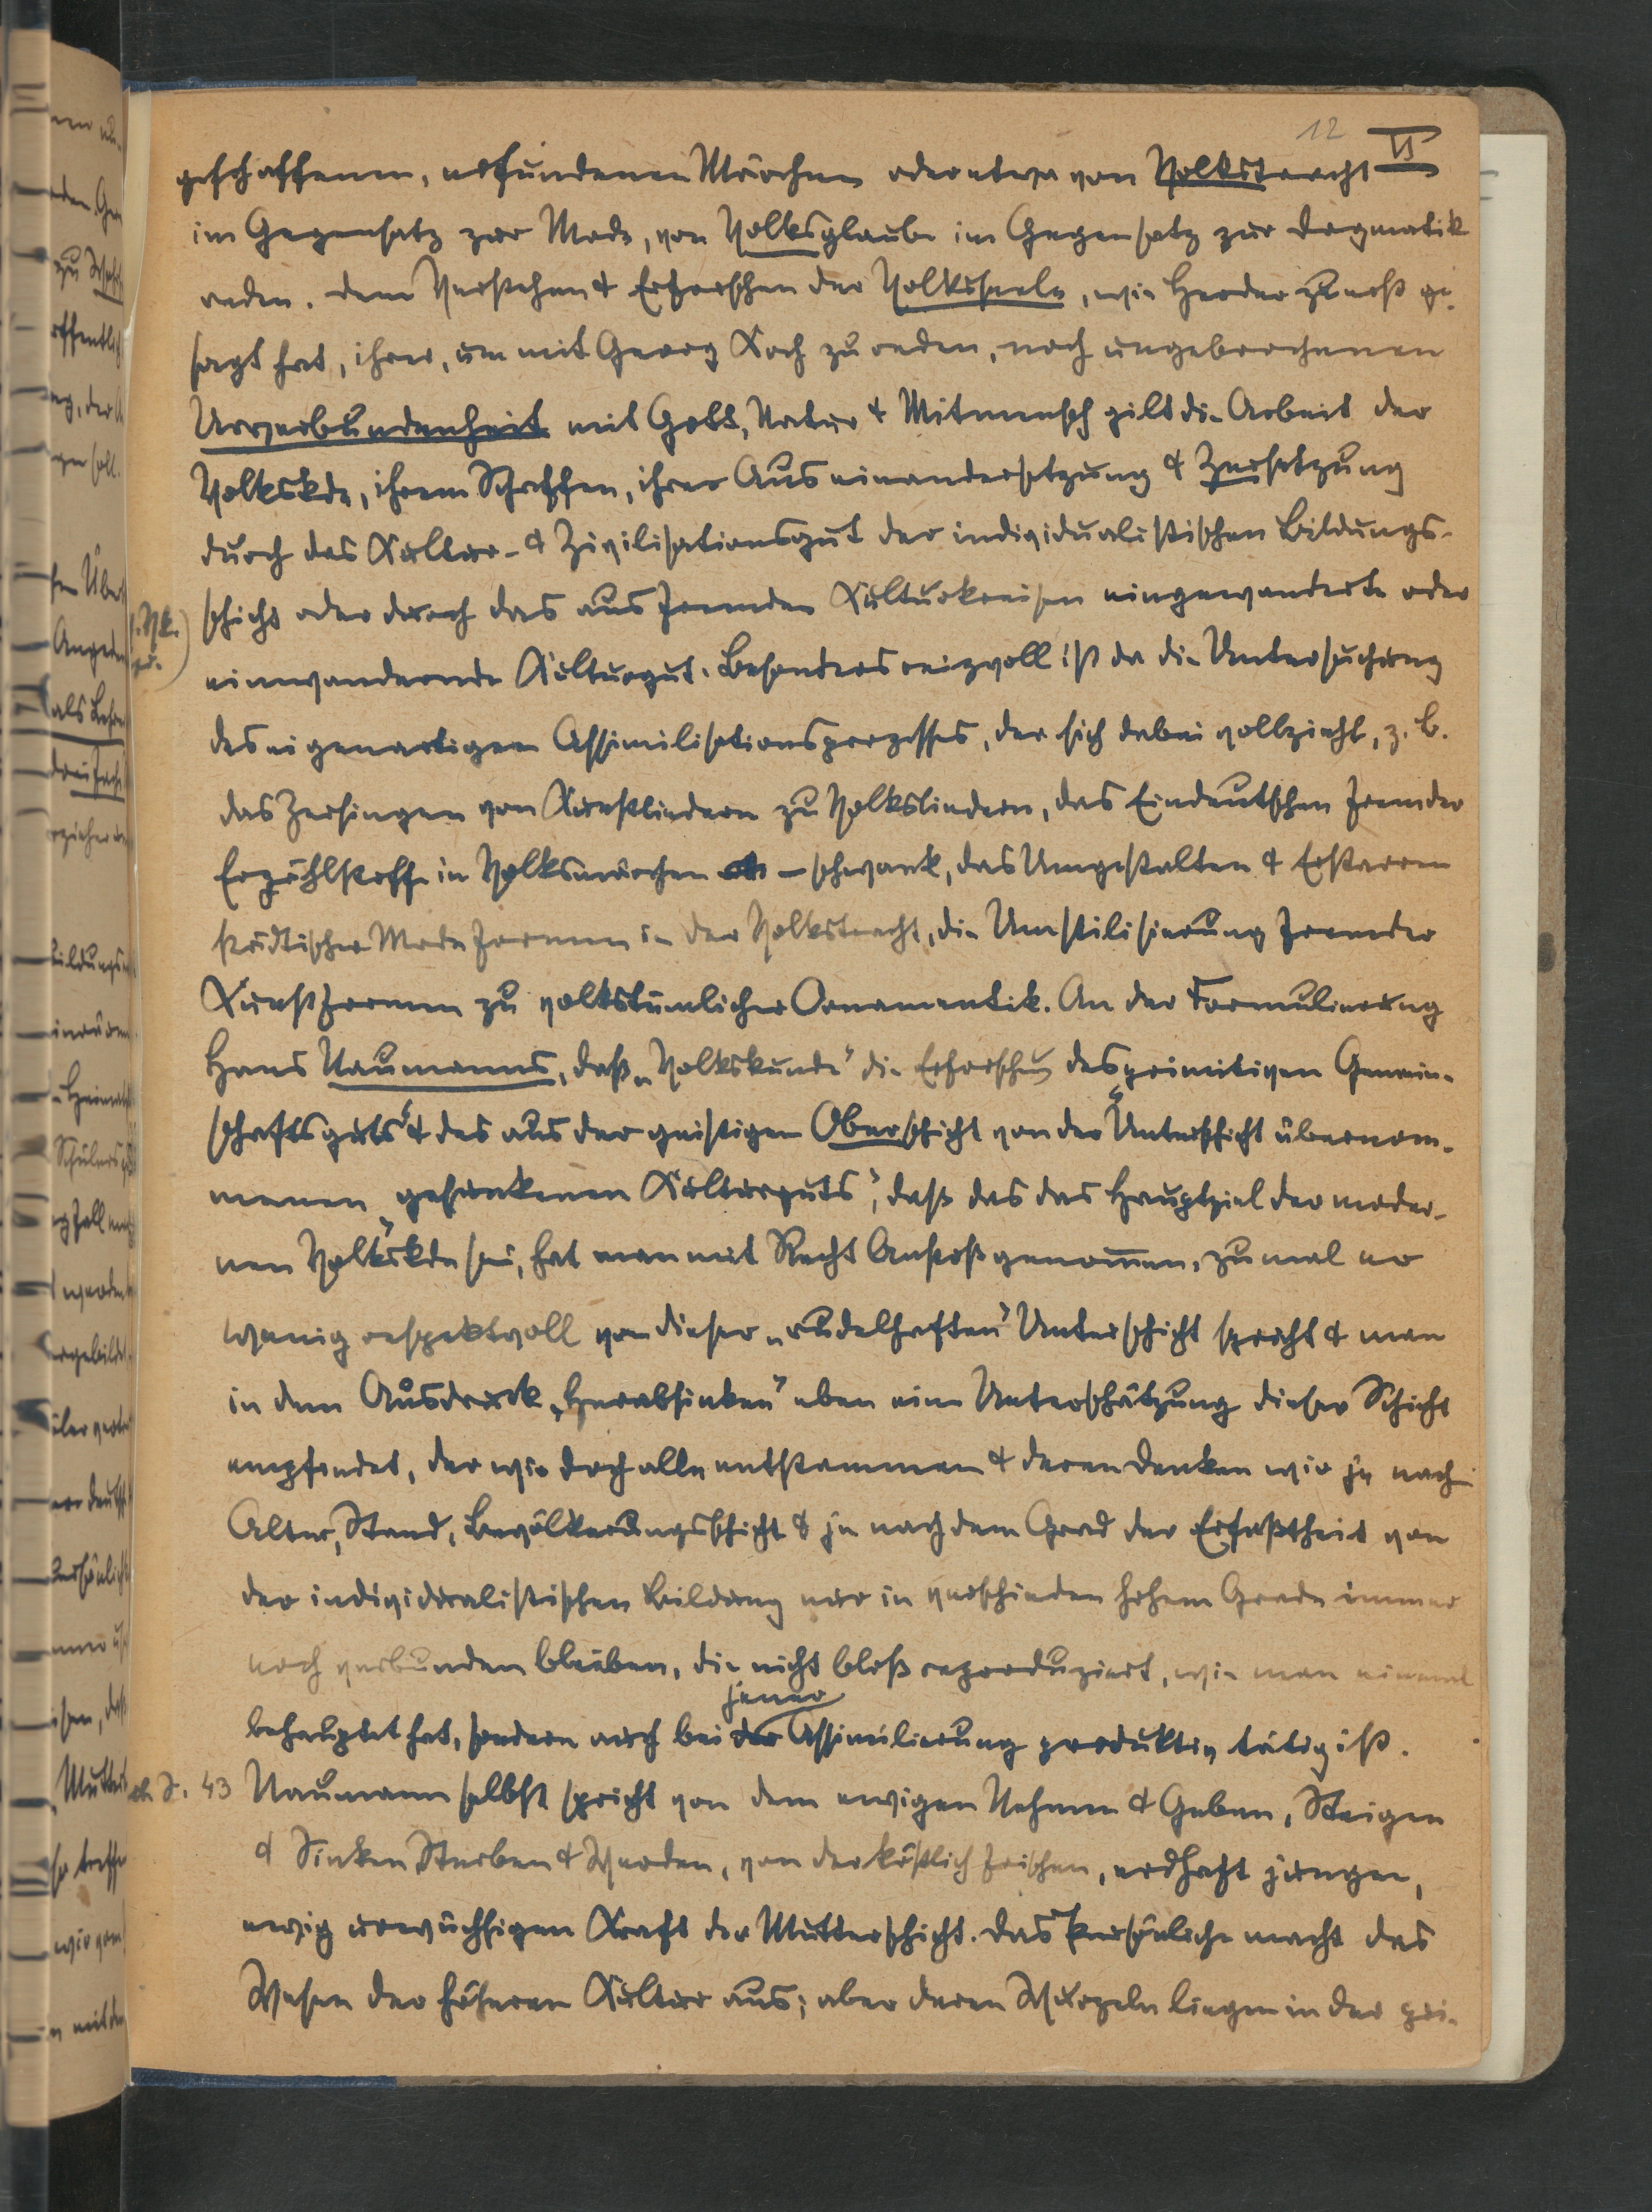 12 VI
geschaffenen, erfundenen Märchen oder etwa von Volkstracht
im Gegensatz zur Mode, von Volksglaube im Gegensatz zur Dogmatik
reden. Dem Verstehen & Erforschen der Volksseele, wie Herder zuerst ge-
sagt hat, ihrer, um mit Georg Koch zu reden, noch ungebrochenen
Urverbundenheit mit Gott, Natur & Mitmensch gilt die Arbeit der
Volkskde, ihrem Schaffen, ihrer Auseinandersetzung & Zersetzung
durch das Kultur- & Zivilisationsgut der individualistischen Bildungs-
schicht oder durch das aus fremden Kulturkreisen eingewanderte oder
einwandernde Kulturgut. Besonders reizvoll ist da die Untersuchung
des eigenartigen Assimilisationsprozesses, der sich dabei vollzieht, z. B.
das Zersingen von Kunstliedern zu Volksliedern, das Eindeutschen fremder
Erzählstoffe in Volksmärchen & -schwank, das Umgestalten & Erstarren
städtischer Modeformen in der Volkstracht, die Umstilisierung fremder
Kunstformen zu volkstümlicher Ornamentik. An der Formulierung
Hans Naumanns, daß „Volkskunde" die Erforschung des „primitiven Gemein-
schaftsguts" & des aus der geistigen Oberschicht von der Unterschicht übernom-
menen „gesunkenen Kulturguts", daß das das Hauptziel der moder-
nen Volkskde sei, hat man mit Recht Anstoß genommen, zumal er
wenig respektvoll von dieser „rudelhaften" Unterschicht spricht & man
in dem Ausdruck „Herabsinken" eben eine Unterschätzung dieser Schicht
empfindet, der wir doch alle entstammen & deren Denken wir je nach
Alter, Stand, Bevölkerungsschicht & je nach dem Grad der Erfaßtheit von
der individualistischen Bildung nur in verschieden hohem Grade immer
noch verbunden bleiben, die nicht bloß reproduziert, wie man einmal
behauptet hat, sondern auch bei der jener Assimilierung produktiv tätig ist.
S. 43 Naumann selbst spricht von dem ewigen Nehmen & Geben, Steigen
& Sinken, Sterben & Werden, von der köstlich frischen, erdhaft jungen,
ewig urwüchsigen Kraft der Mutterschicht. Das Persönliche macht das
Wesen der höheren Kultur aus; aber deren Wurzeln liegen in der pri-